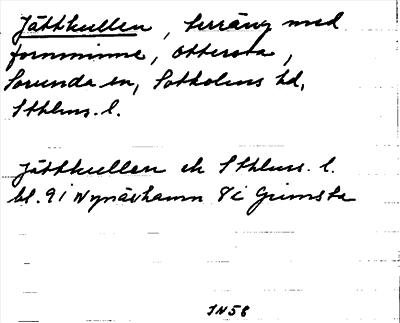 Jätthullen, terräng med
fornminne, Ottersta,
Sorunda sn, Sotholms hd,
Sthlms. l.
Jätthullen ek Sthlms. l.
bl. 91 Nynäshamn 8i Grimsta
IN58